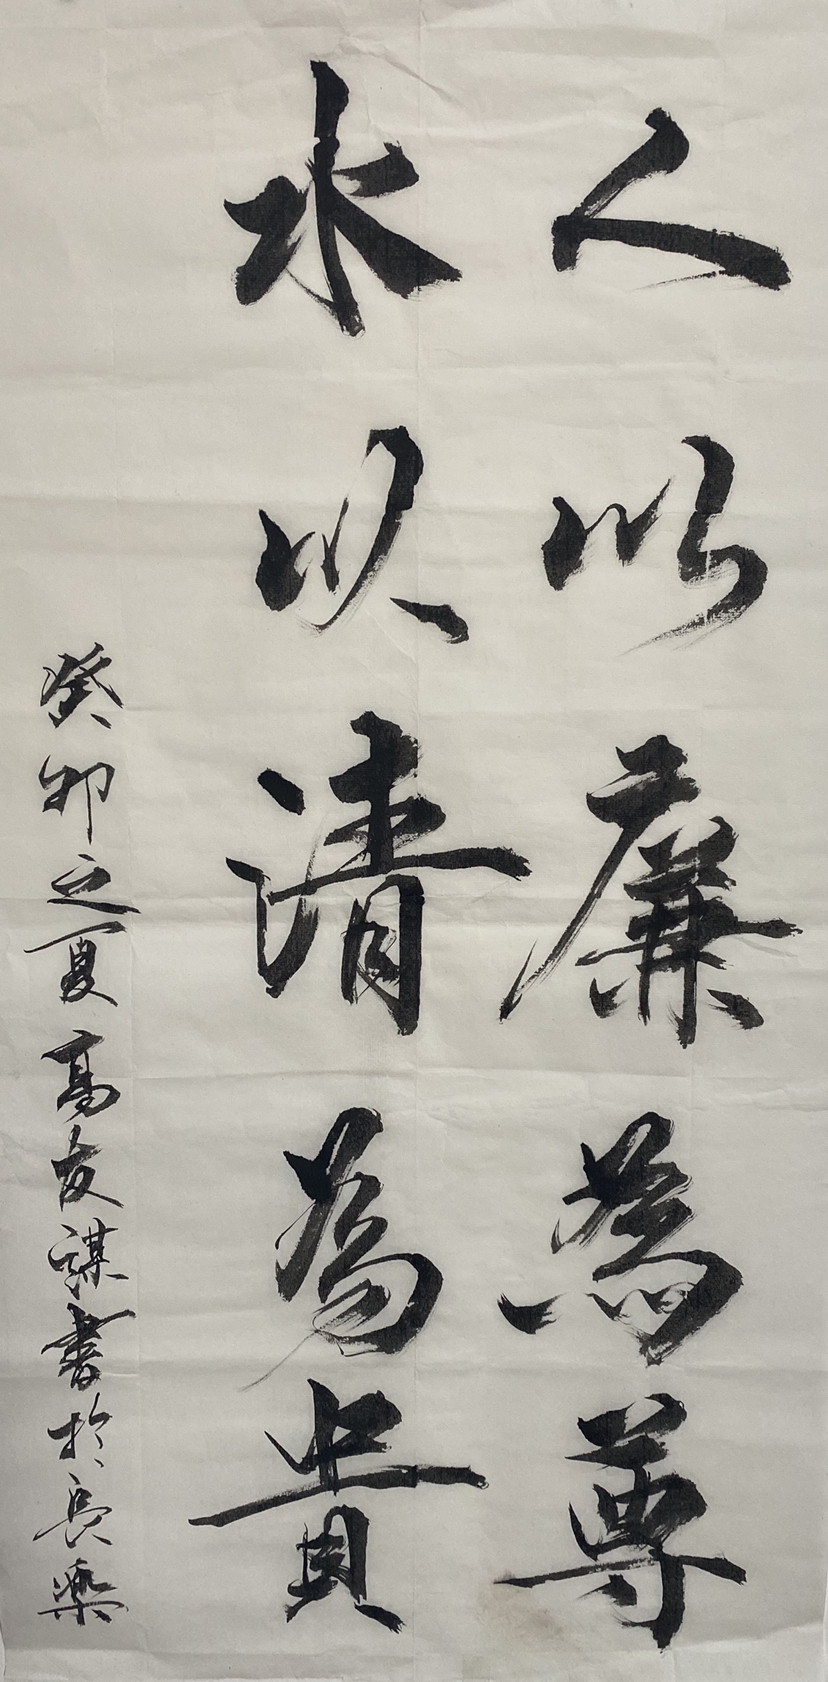 人以廉為尊
水以清為貴
癸卯之夏高友謀書於長樂